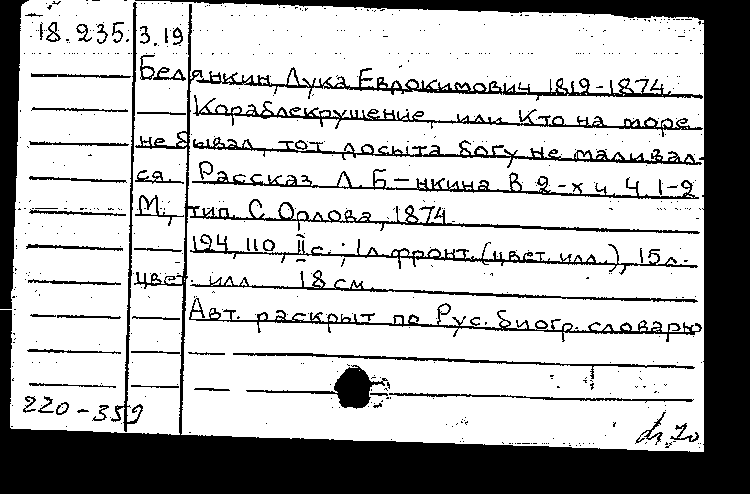 18.235. 3.19
Белянкин, Лука Евдокимович, 1819-1874.
Кораблекрушение, или Кто на море
не бывал, тот досыта богу не маливал-
ся. Рассказ Л. Б-нкина В 2-х ч. Ч. 1-2
М., тип. С. Орлова, 1874.
194, 110, II с.; 1 л. фронт. (цвет. илл.), 15 л.
цвет. илл. 18 см.
Авт. раскрыт по Рус. биогр. словарю
220-359